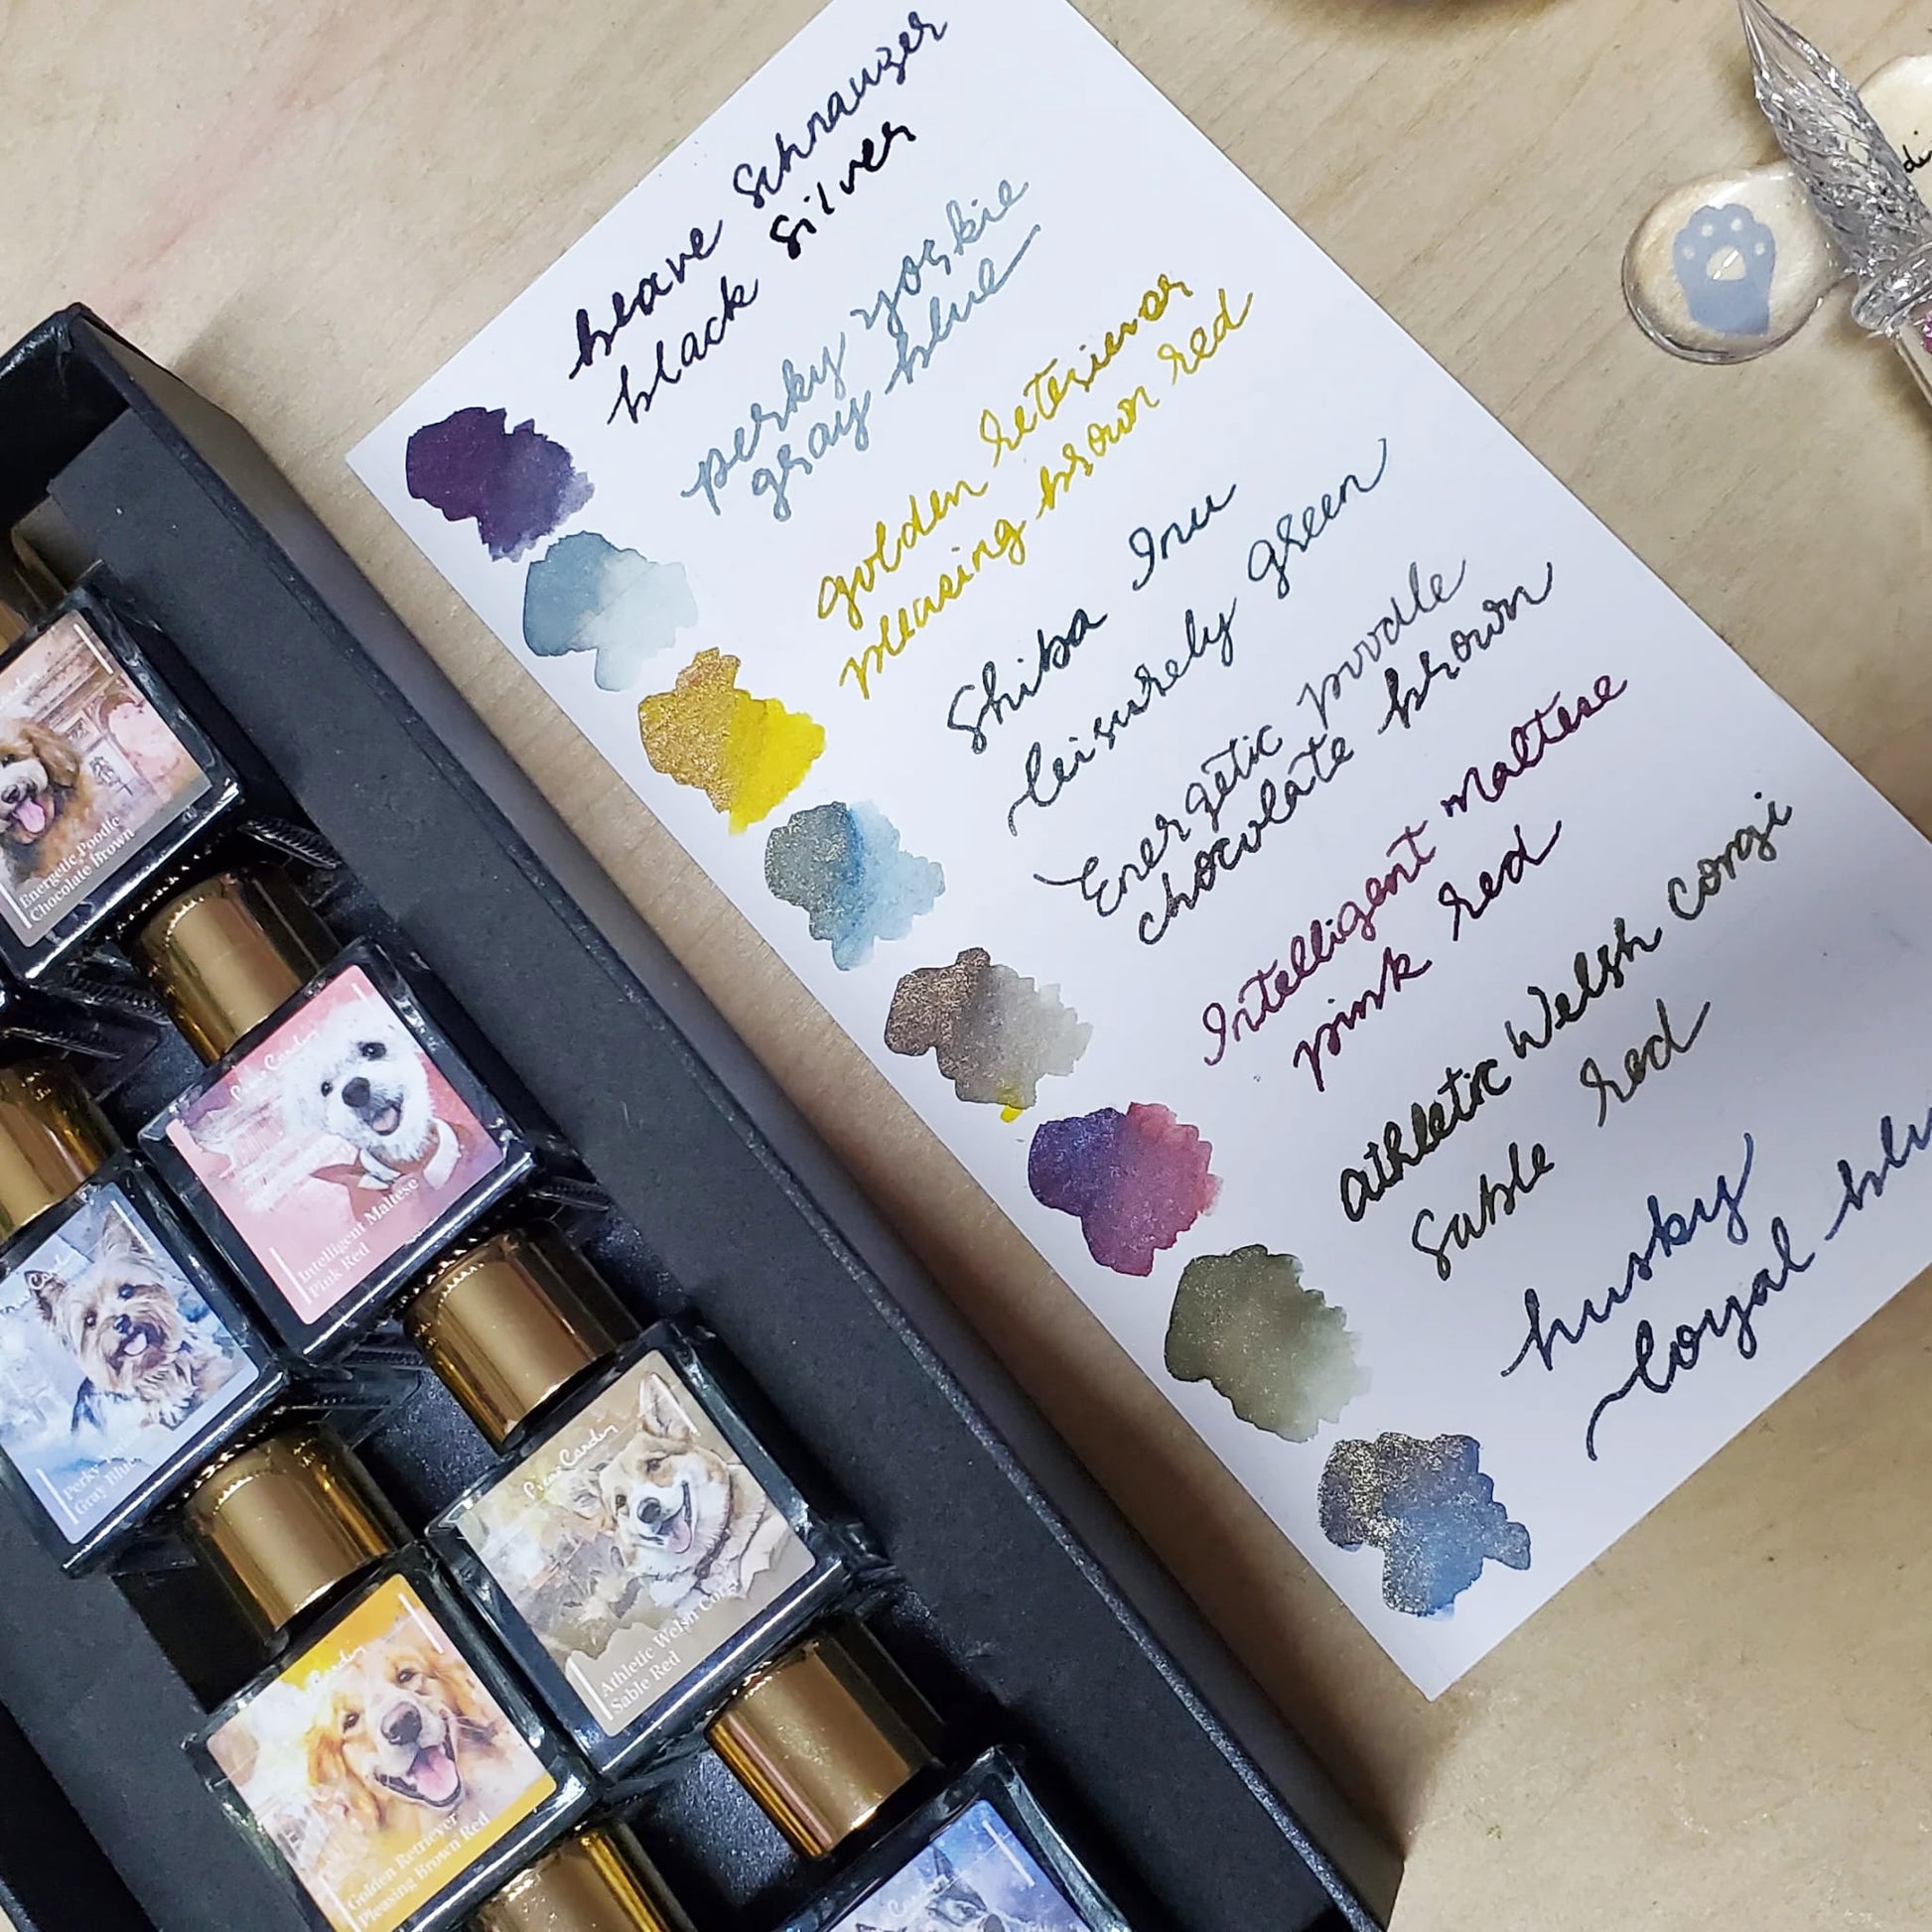 brave Schnauzer
black Silver
perky yorkie
gray blue
golden reteriever
pleasing brown red
Shiba Inu
leisurely green
Energetic poodle
chocolate brown
Intelligent maltese
pink red
athletic Welsh corgi
Sable red
husky
loyal blu
Energetic Poodle
Chocolate Brown
Pierre Cardin
Intelligent Maltese
Pink Red
Perky
Gray Blue
Pierre Cardin
Athletic Welsh Corgi
Sable Red
Cardin
Golden Retriever
Pleasing Brown Red
Cardin